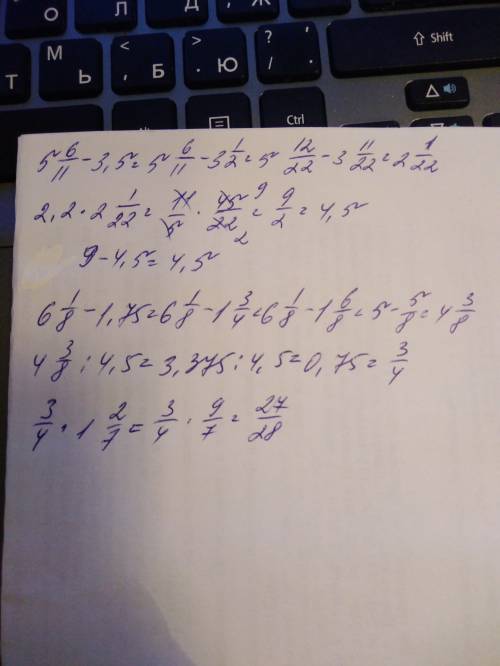 О Л Д Ж
Т М Ь < , Б > . Ю ? / , . ⇧ Shift
Alt Ctrl
5 6/11 - 3,5 = 5 6/11 - 3 1/2 = 5 12/22 - 3 11/22 = 2 1/22
2,2 · 2 1/22 = 11/5 · 45/22 9 2 = 9/2 = 4,5
9 - 4,5 = 4,5
6 1/8 - 1,75 = 6 1/8 - 1 3/4 = 6 1/8 - 1 6/8 = 5 - 5/8 = 4 3/8
4 3/8 : 4,5 = 3,375 : 4,5 = 0,75 = 3/4
3/4 · 1 2/7 = 3/4 · 9/7 = 27/28